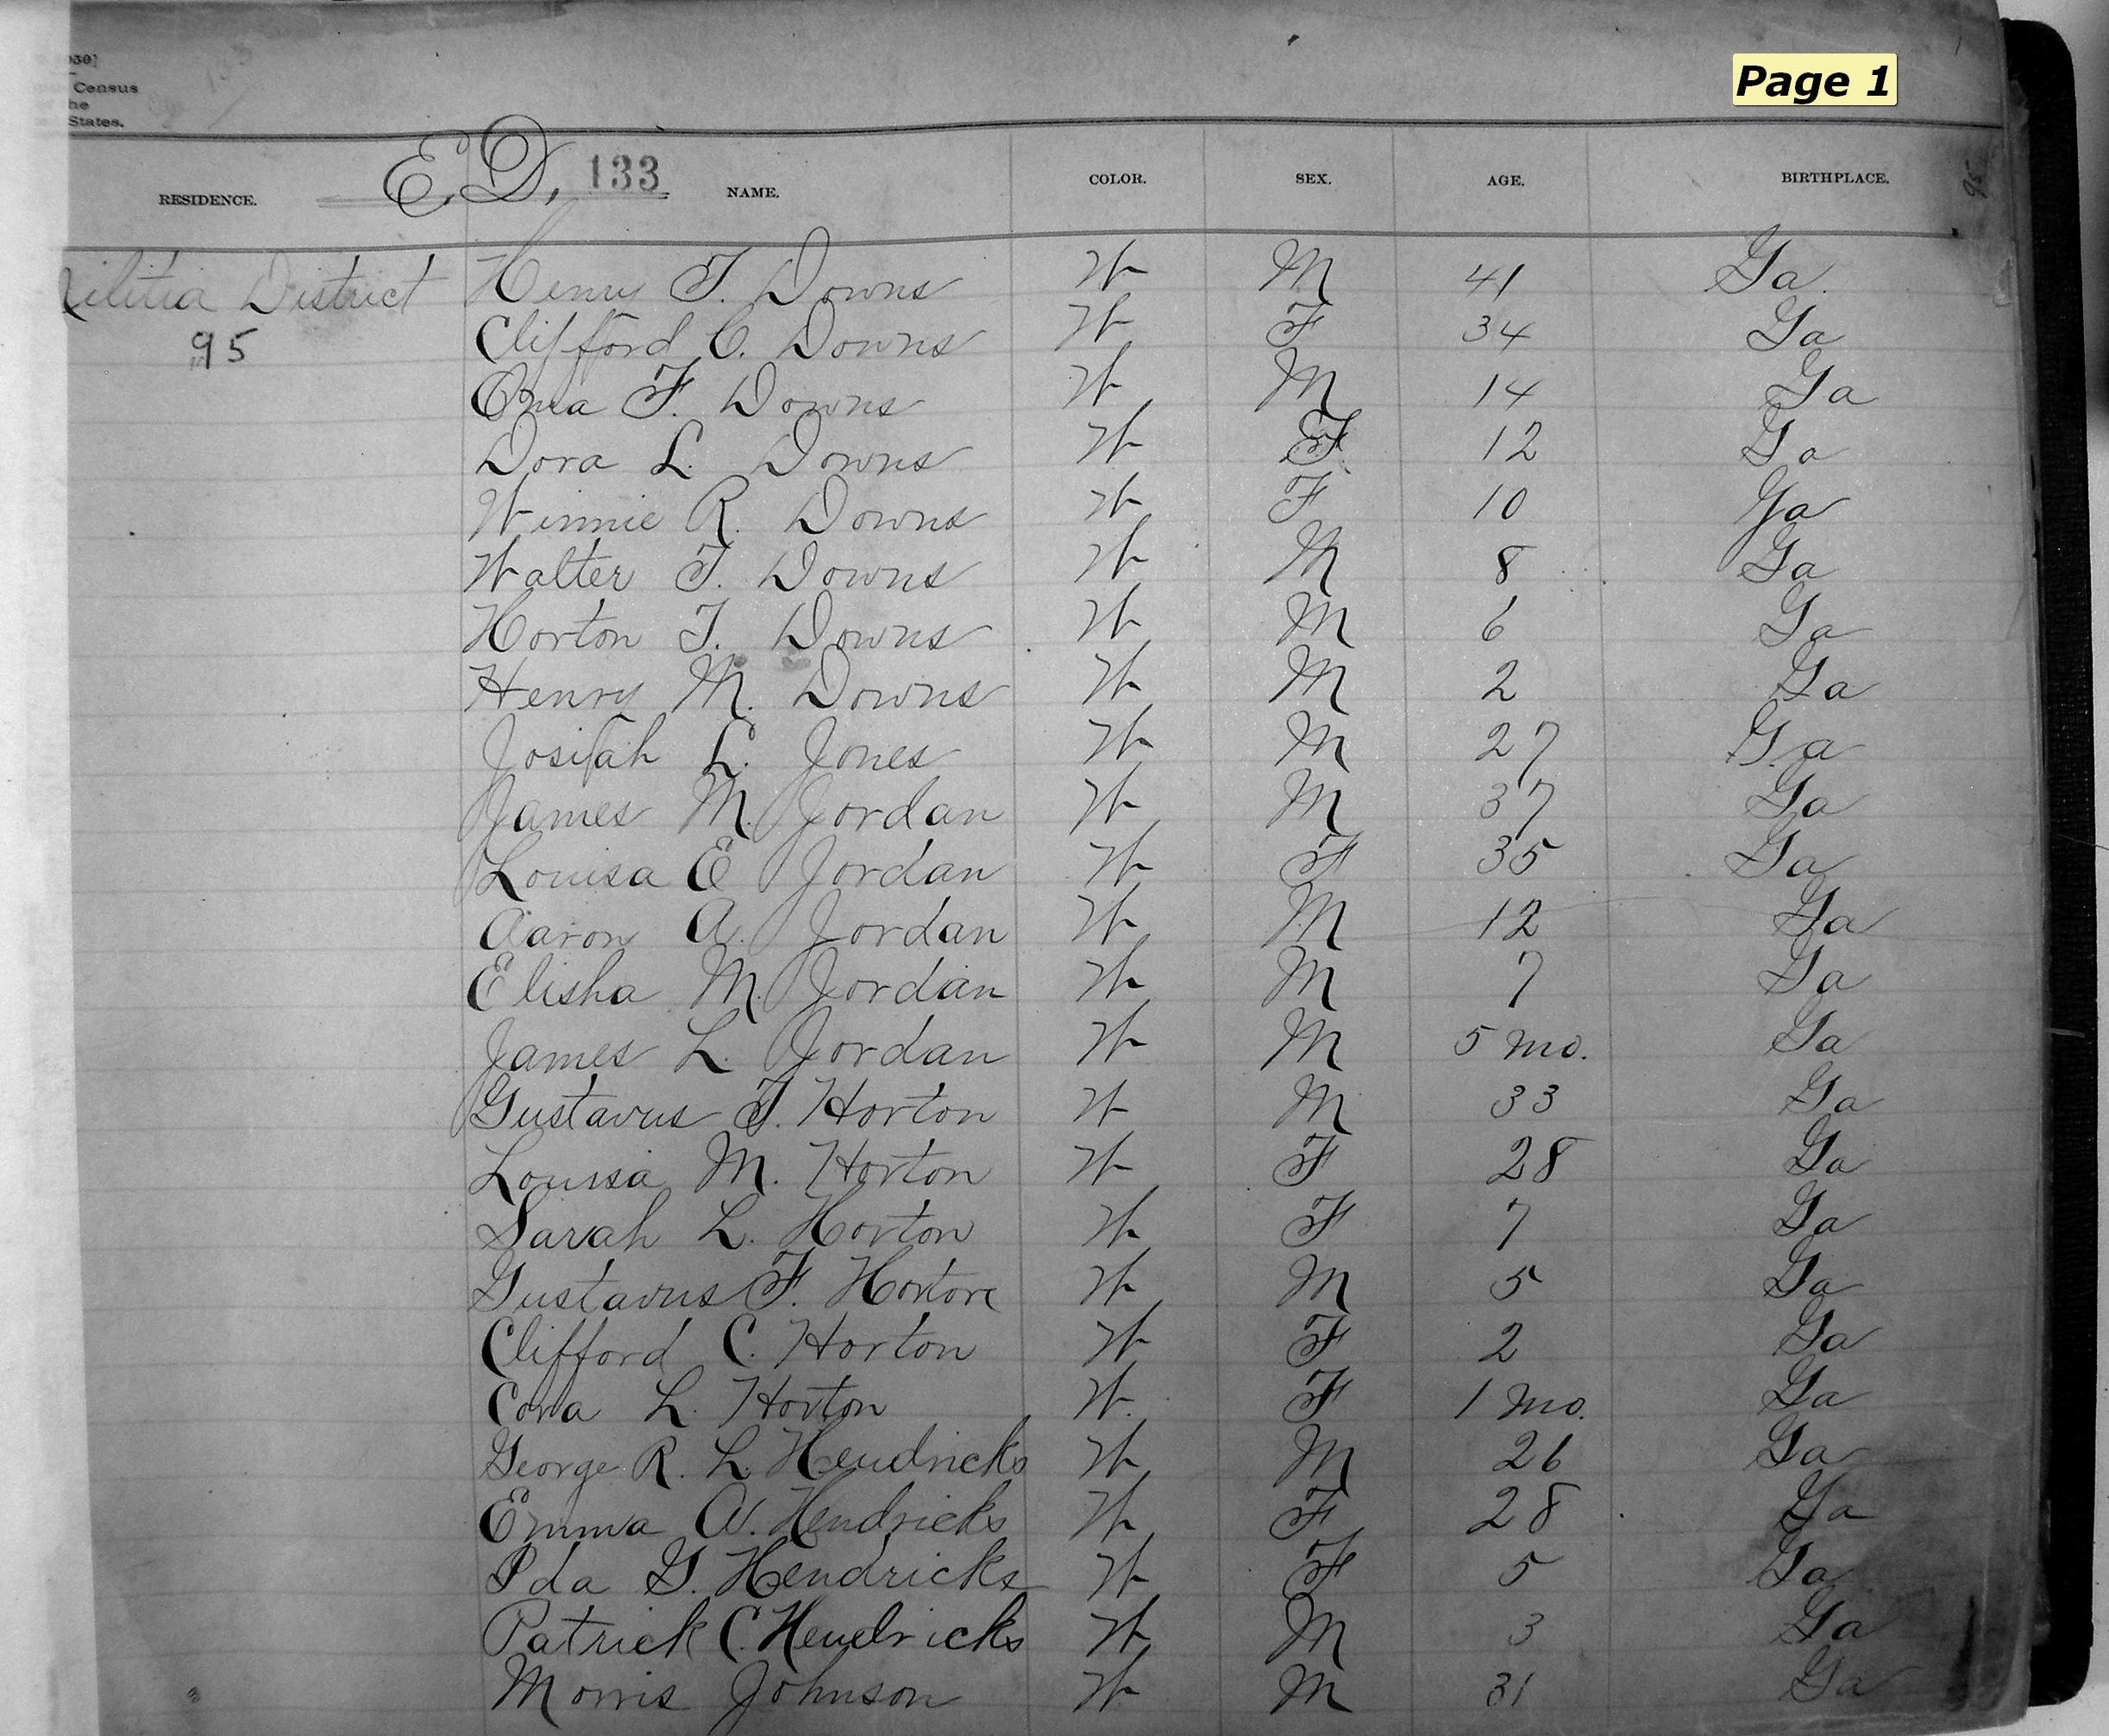 030]
Census
he
States.
Page 1
E.D. 133
RESIDENCE. NAME. COLOR. SEX. AGE. BIRTHPLACE.
95
Militia District Henry T. Downs W M 41 Ga.
95 Clifford C. Downs W F 34 Ga
F. Downs W M 14 Ga
Dora L. Downs W F 12 Ga
Winnie R. Downs W F 10 Ga
Walter T. Downs W M 8 Ga
Horton T. Downs W M 6 Ga
Henry M. Downs W M 2 Ga
L. Jones W M 27 Ga
James M. Jordan W M 37 Ga
Louisa E Jordan W F 35 Ga
Aaron A. Jordan W M 12 Ga
Elisha M. Jordan W M 7 Ga
James L. Jordan W M 5 mo. Ga
Gustavus T. Horton W M 33 Ga
Louisa M. Horton W F 28 Ga
Sarah L. Horton W F 7 Ga
Gustavus F. Horton W M 5 Ga
Clifford C. Horton W F 2 Ga
Cora L. Horton W. F 1 mo. Ga
George R. L. Hendricks W M 26 Ga
Emma A. Hendricks W F 28 Ga
Ida G. Hendricks W F 5 Ga
Patrick C. Hendricks W M 3 Ga
Morris Johnson W M 31 Ga